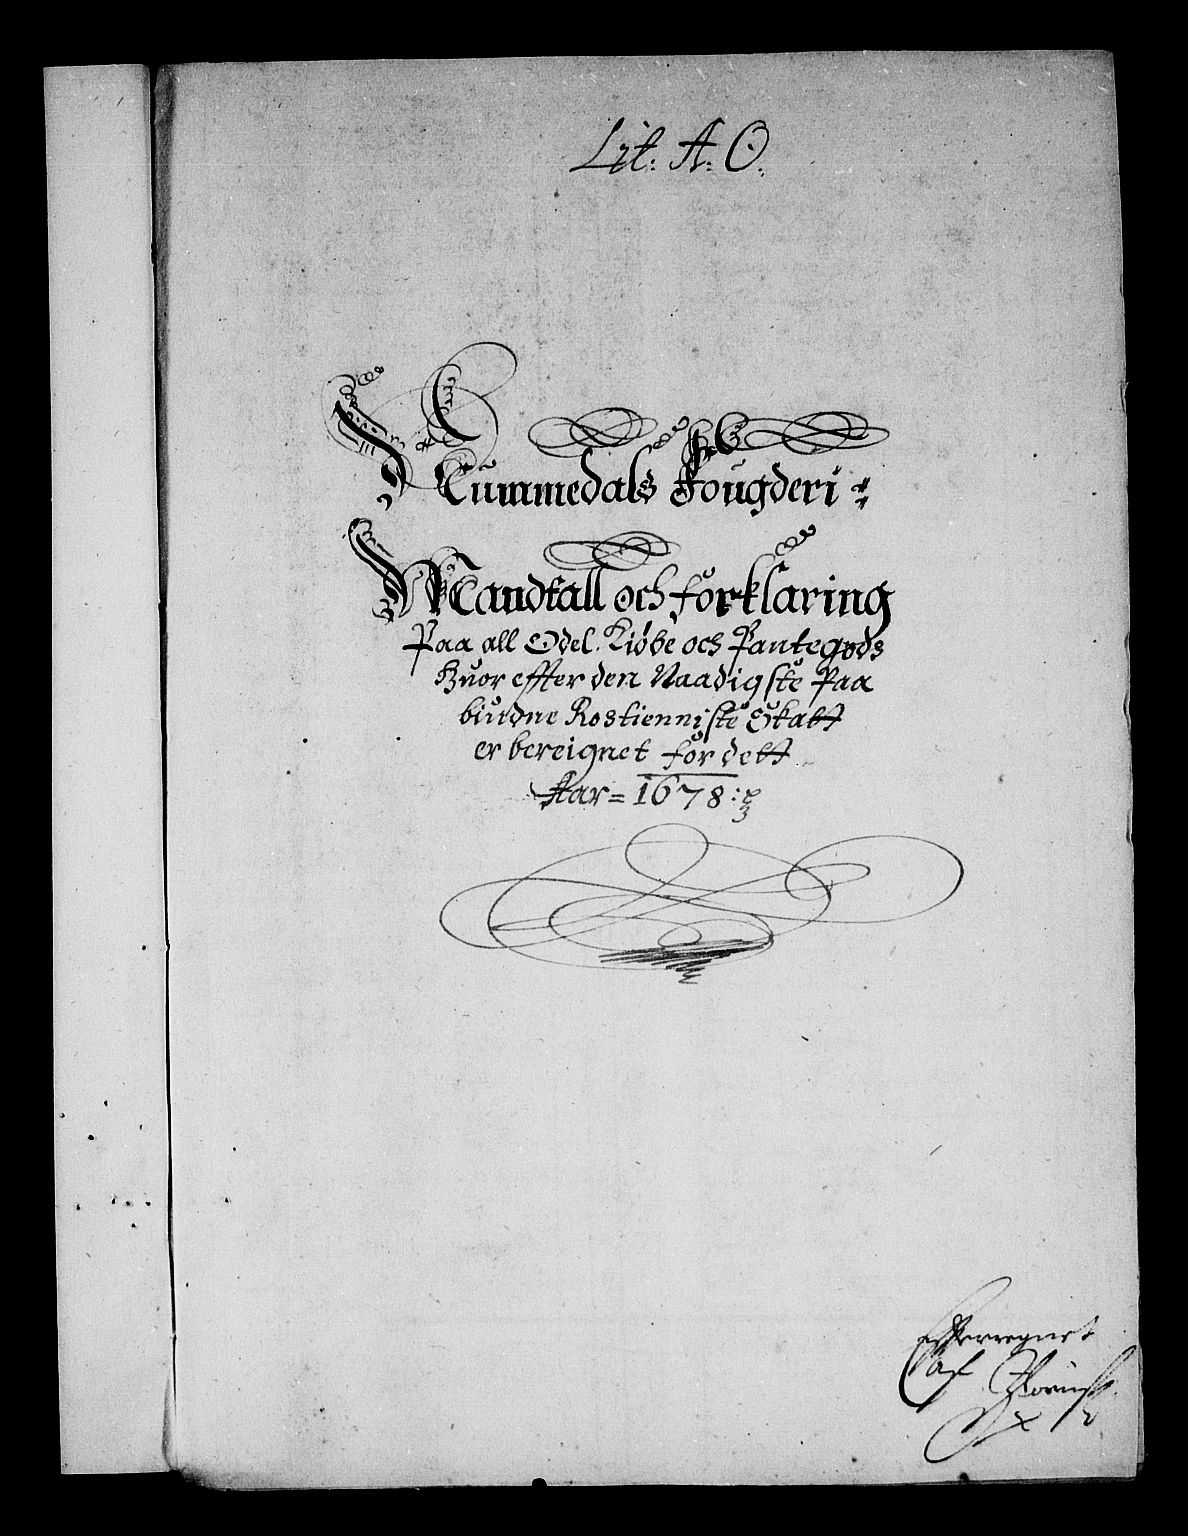 Lit: A: O:
Nummedals Fougderi:
Mandtall och forklaring
Paa all Odel. Kiøbe och Pantegods
Huor effter den Naadigste Paa
biudne Rostienniste Skatt
er bereignet for dett
Aar = 1678:
effterregnet
af